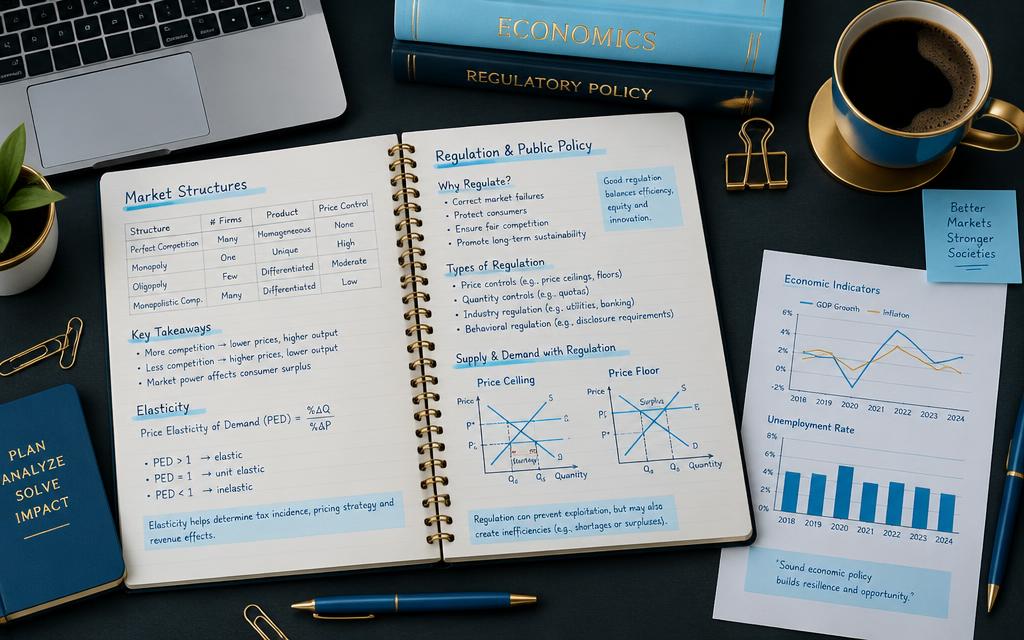 ECONOMICS
REGULATORY POLICY
PLAN
ANALYZE
SOLVE
IMPACT
Market Structures
Structure # Firms Product Price Control
Perfect Competition Many Homogeneous None
Monopoly One Unique High
Oligopoly Few Differentiated Moderate
Monopolistic Comp. Many Differentiated Low
Key Takeaways
• More competition → lower prices, higher output
• Less competition → higher prices, lower output
• Market power affects consumer surplus
Elasticity
Price Elasticity of Demand (PED) = %ΔQ
%ΔP
• PED > 1 → elastic
• PED = 1 → unit elastic
• PED < 1 → inelastic
Elasticity helps determine tax incidence, pricing strategy and
revenue effects.
Regulation & Public Policy
Why Regulate?
• Correct market failures
• Protect consumers
• Ensure fair competition
• Promote long-term sustainability
Good regulation
balances efficiency,
equity and
innovation.
Types of Regulation
• Price controls (e.g., price ceilings, floors)
• Quantity controls (e.g., quotas)
• Industry regulation (e.g., utilities, banking)
• Behavioral regulation (e.g., disclosure requirements)
Supply & Demand with Regulation
Price Ceiling
Price
S
P*
Quantity
Price Floor
Price
S
Surplus
P*
D
Quantity
Regulation can prevent exploitation, but may also
create inefficiencies (e.g., shortages or surpluses).
Better
Markets
Stronger
Societies
Economic Indicators
GDP Growth Inflation
6%
4%
2%
0%
-2%
2018 2019 2020 2021 2022 2023 2024
Unemployment Rate
8%
6%
4%
2%
0%
2018 2019 2020 2021 2022 2023 2024
"Sound economic policy
builds resilience and opportunity."